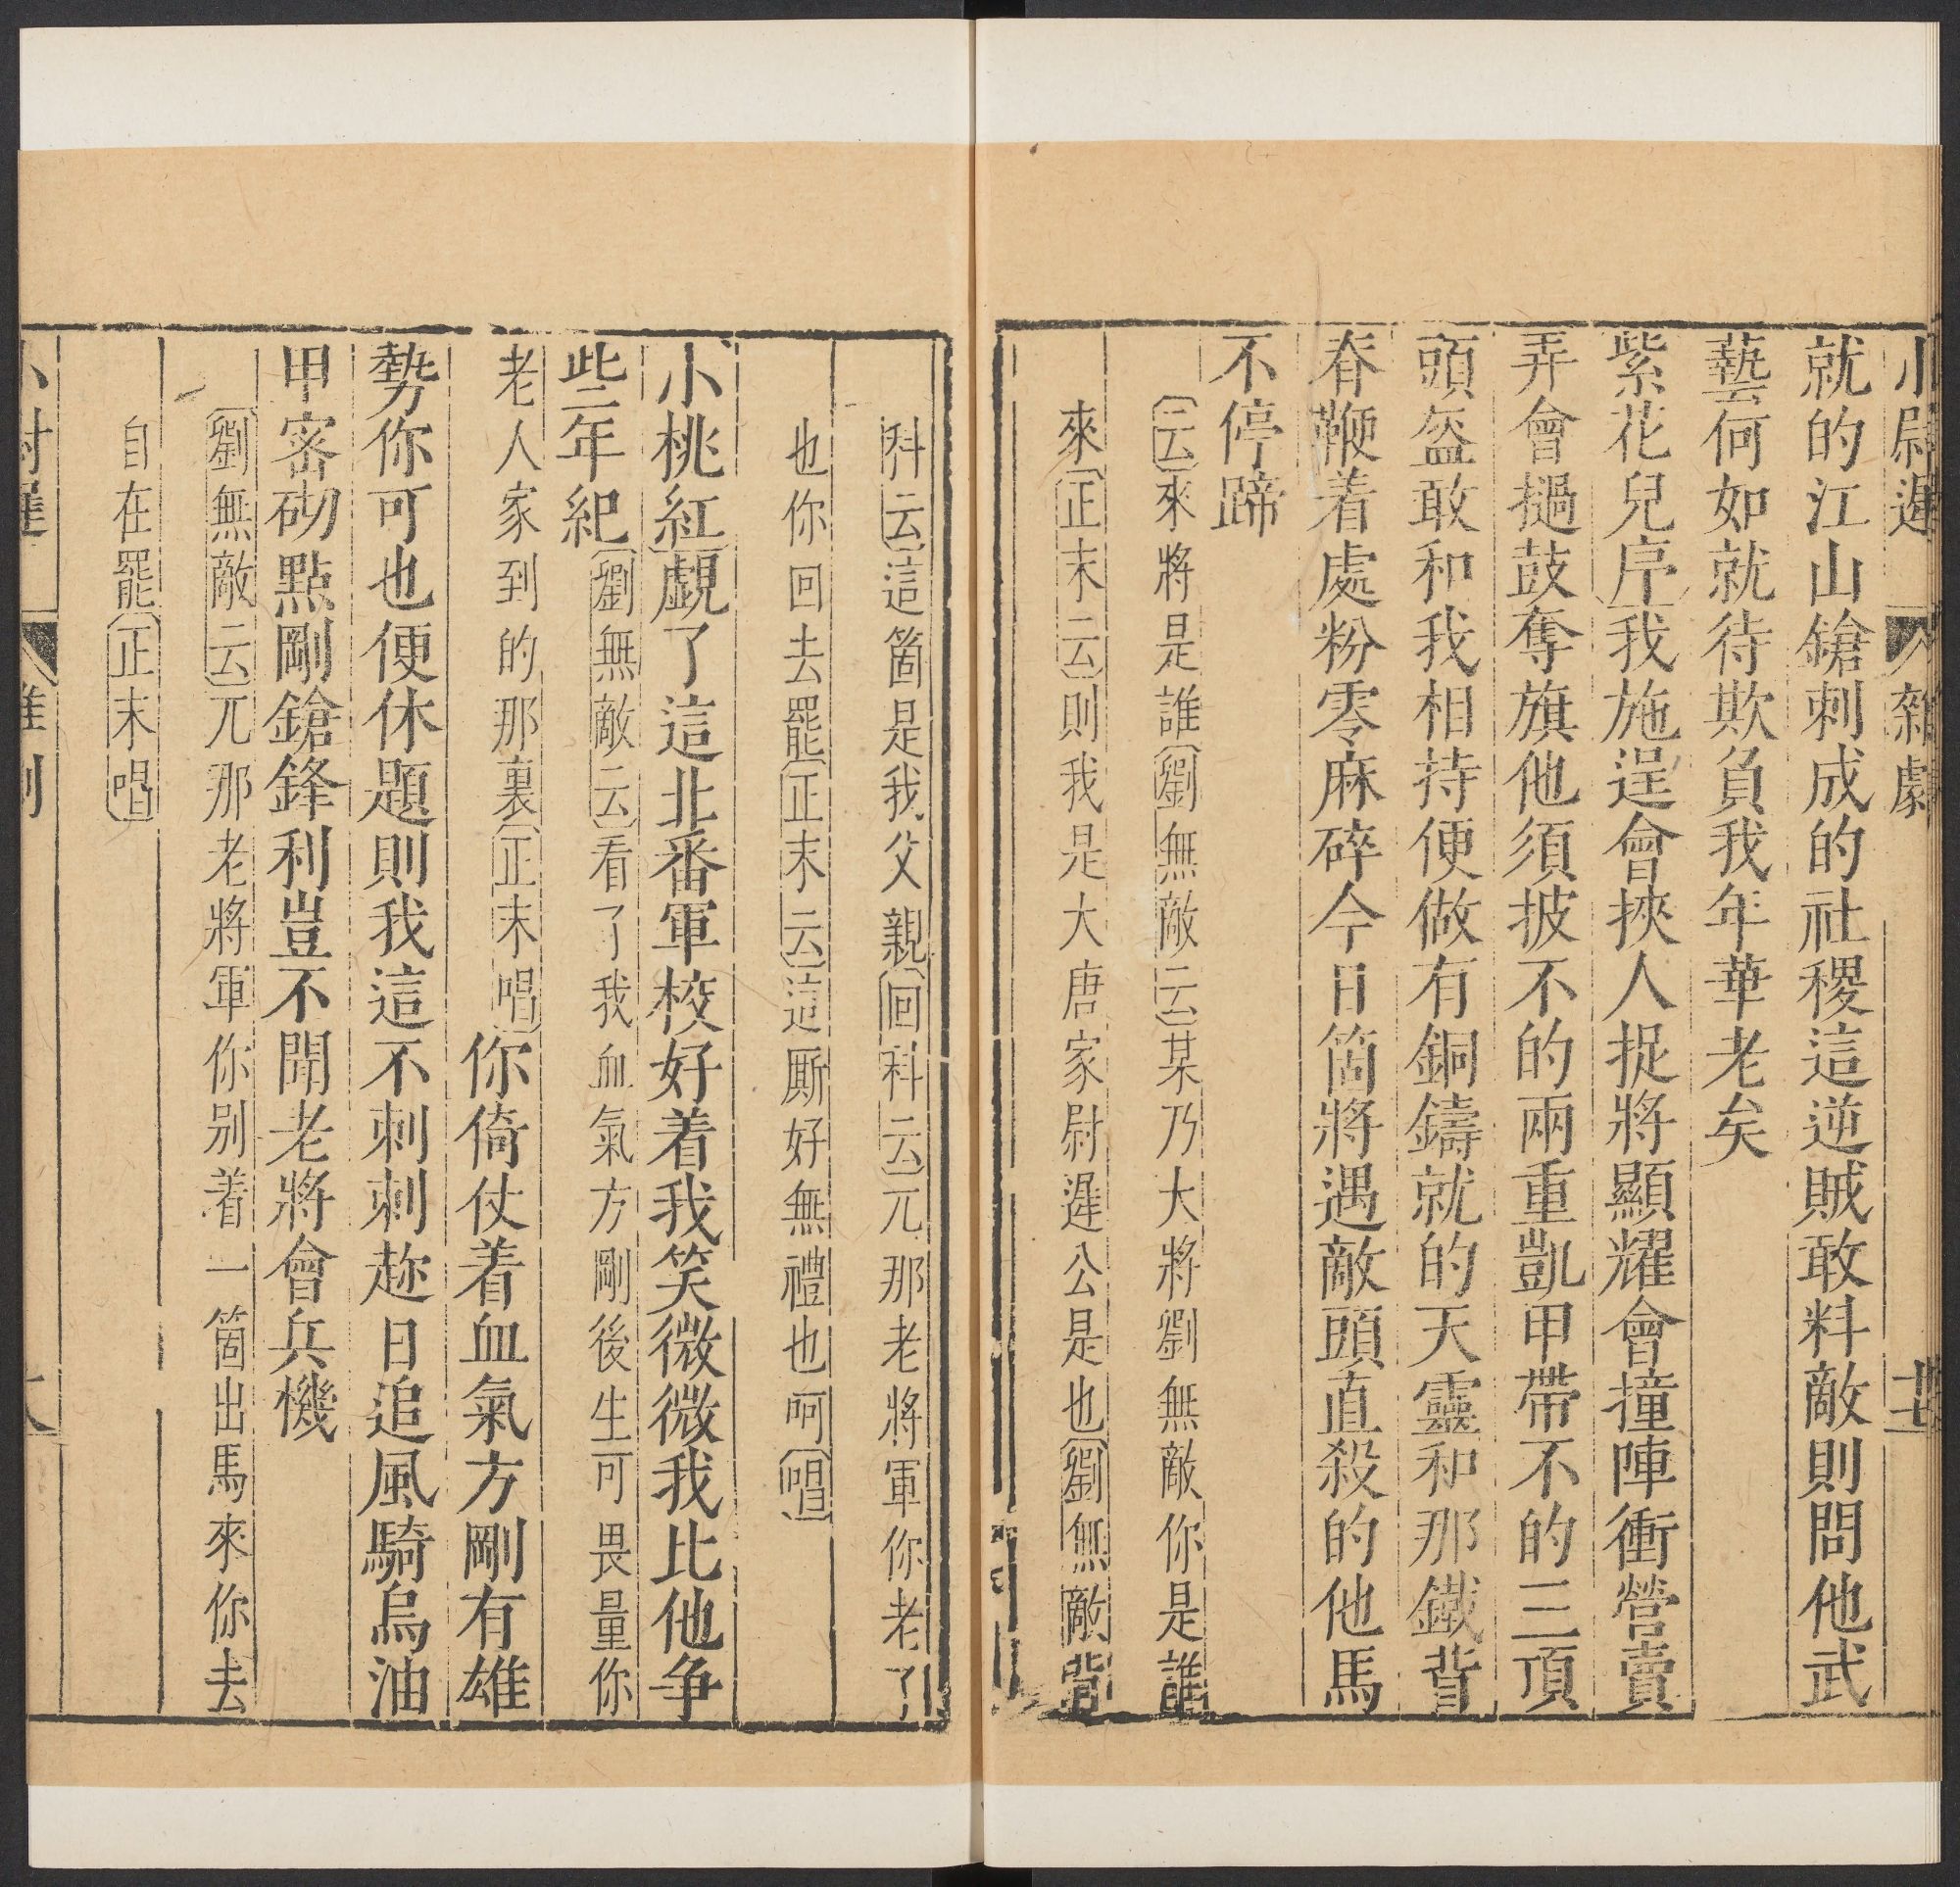 小尉遲 雜劇 十七
就的江山鎗刺成的社稷這逆賊敢料敵則問他武
藝何如就待欺負我年華老矣
紫花兒序我施逞會挾人捉將顯耀會撞陣衝營賣
弄會撾鼓奪旗他須披不的兩重凱甲帶不的三項
頭盔敢和我相持便做有銅鑄就的天靈和那鐵背
春鞭着處粉零麻碎今日箇將遇敵頭直殺的他馬
不停蹄
云來將是誰劉無敵云某乃大將劉無敵你是誰
來正末云則我是大唐家尉遲公是也劉無敵背
科云這箇是我父親回科云兀那老將軍你老了
也你回去罷正末云這厮好無禮也呵唱
小桃紅覷了這北番軍校好着我笑微微我比他争
些年紀劉無敵云看了我血氣方剛後生可畏量你
老人家到的那裏正末唱你倚仗着血氣方剛有雄
勢你可也便休題則我這不刺刺趂日追風騎烏油
甲密砌點剛鎗鋒利豈不聞老將會兵機
劉無敵云兀那老將軍你别着一箇出馬來你去
自在罷正末唱